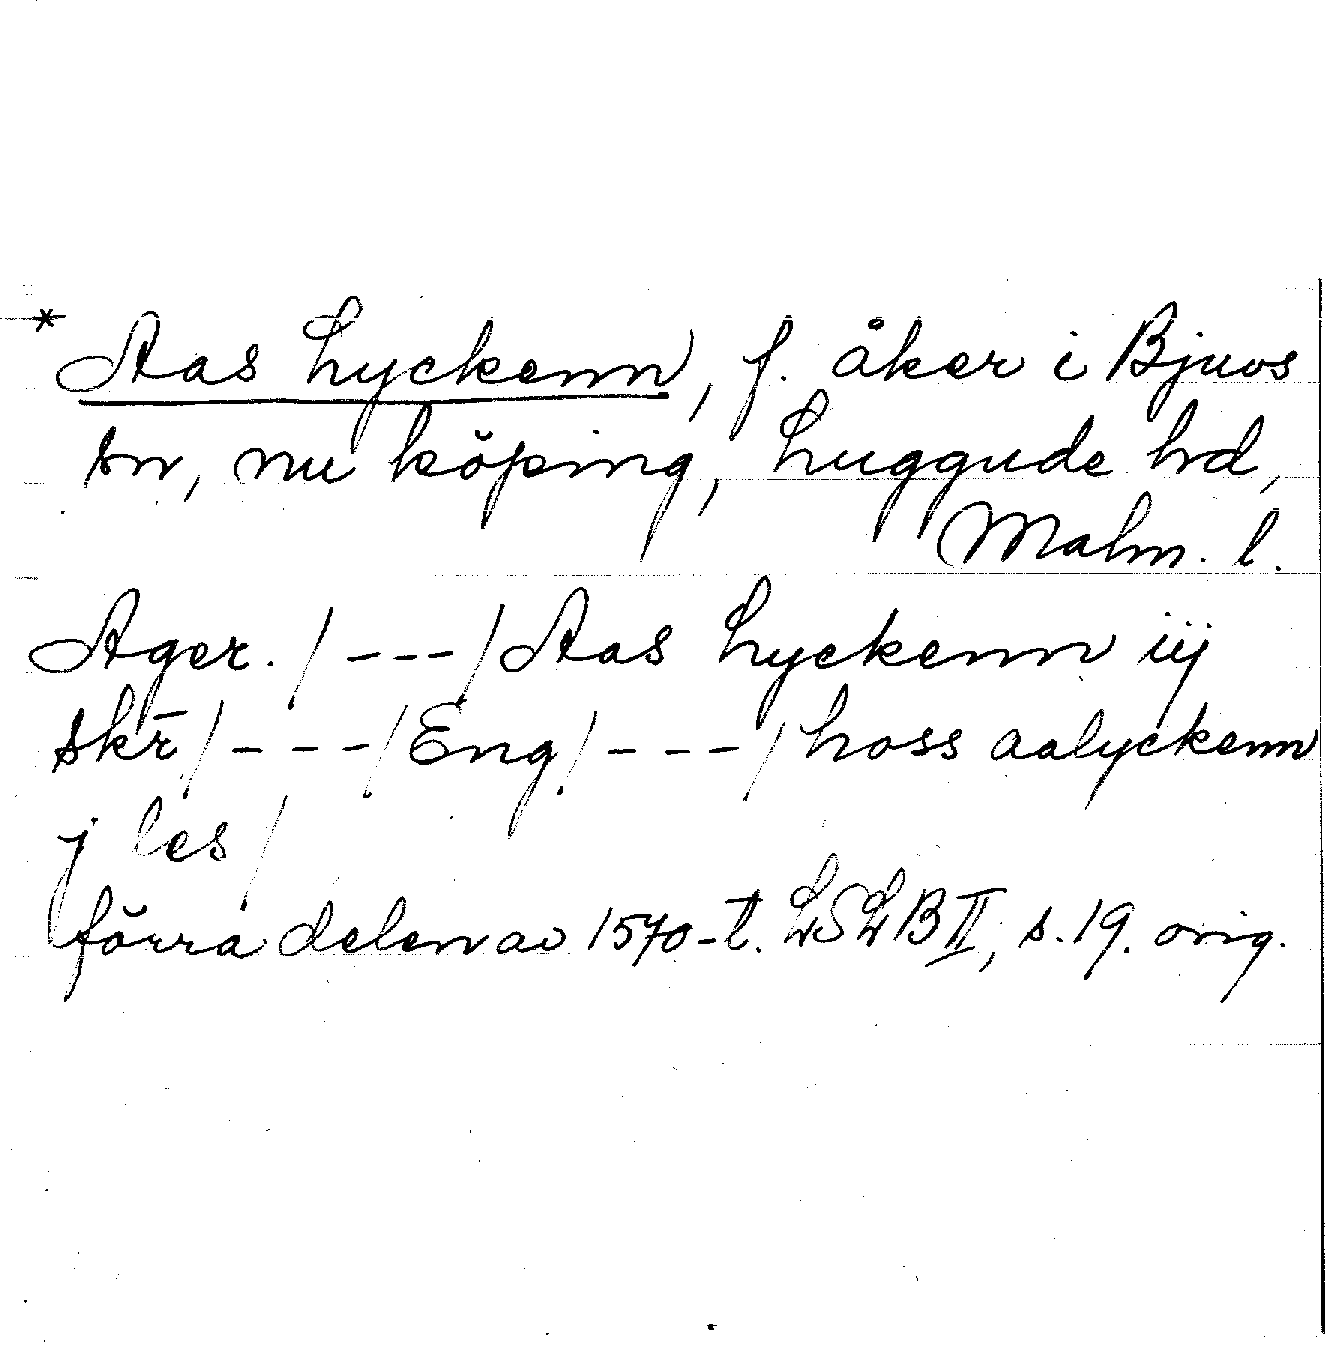 * Aas Lyckenn, f. åker i Bjuvs
sn, nu köping, Luggude hd,
Malm. l.
Ager. / --- / Aas Lyckenn iij
skr̄ / --- / Eng / --- / hoss aalyckenn
j les /
förra delen av 1570-t. LSLB II, s. 19. orig.